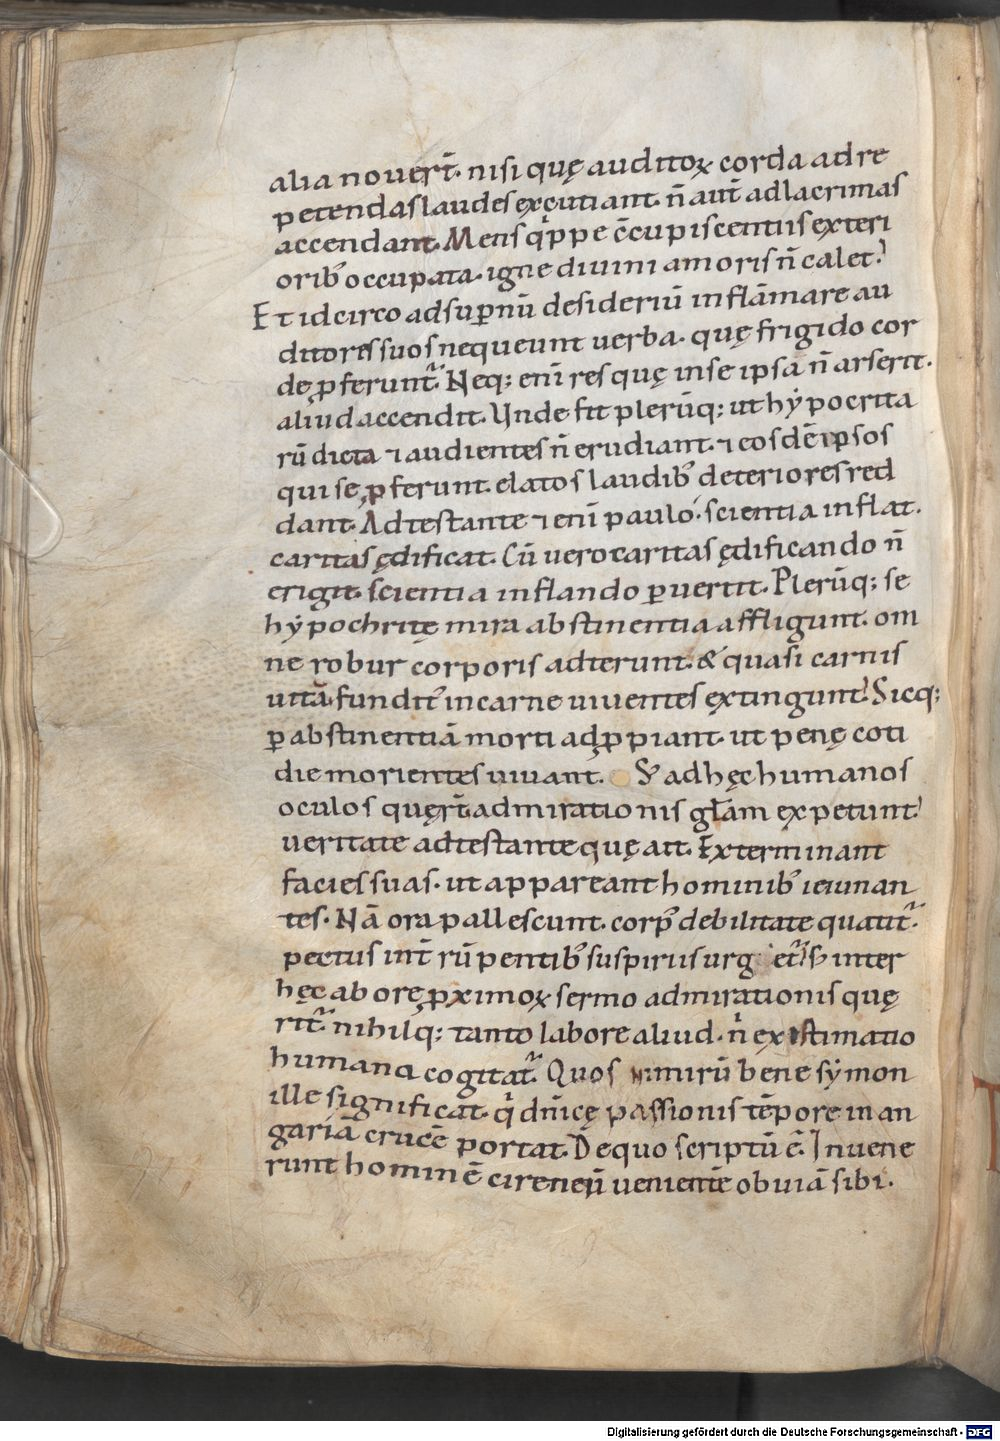 alia nouerт̄. nisi quę auditoꝝ corda ad re
petendas laudes excutiant. n̄ aut̄ ad lacrimas
accendant. Mens q̍ppe c̄cupiscentiis exteri
orib᷒ occupata. igne diuini amoris n̄ calet.
Et idcirco ad suꝑnū desideriū inflāmare au
ditores suos nequeunt uerba. quę frigido cor
de ꝓferunt᷑. Neq; enī res quę in se ipsā n̄ arserit.
aliud accendit. Unde fit plerūq; ut hẏpocrita
rū dicta ⁊ audientes n̄ erudiant. ⁊ eosdē ipsos
qui se ꝓferunt. elatos laudib᷒ deteriores red
dant. Adtestante ⁊enī paulo. scientia inflat.
caritas ędificat. Cū uero caritas ędificando n̄
erigit. scientia inflando ꝑuertit. Plerūq; se
hẏpochritę mira abstinentia affligunt. om
ne robur corporis adterunt. & quasi carnis
uitā fundit᷒ in carne uiuentes extingunt. Sicq;
ꝑ abstinentiā morti adꝓpiant. ut penę coti
die morientes uiuant. S; ad hęc humanos
oculos quęrт̄. admirationis głam expetunt.
ueritate adtestante quę ait. Exterminant
facies suas. ut appareant hominib᷒ ieiunan
tes. Nā ora pallescunt. corp᷒ debilitate quatit᷑.
pectus int̄rūpentib᷒ suspiriis urgetᷣ. S; inter
hęc ab ore ꝓximoꝝ sermo admirationis quę
rit᷑. nihilq; tanto labore aliud. n̍ existimatio
humana cogitat᷑. Quos nimirū bene sẏmon
ille significat. q̍ dn̄icę passionis tēpore in an
gariā crucē portat. De quo scriptū ē. Inuene
runt hominē cireneū uenientē obuiā sibi.
Digitalisierung gefördert durch die Deutsche Forschungsgemeinschaft - DFG